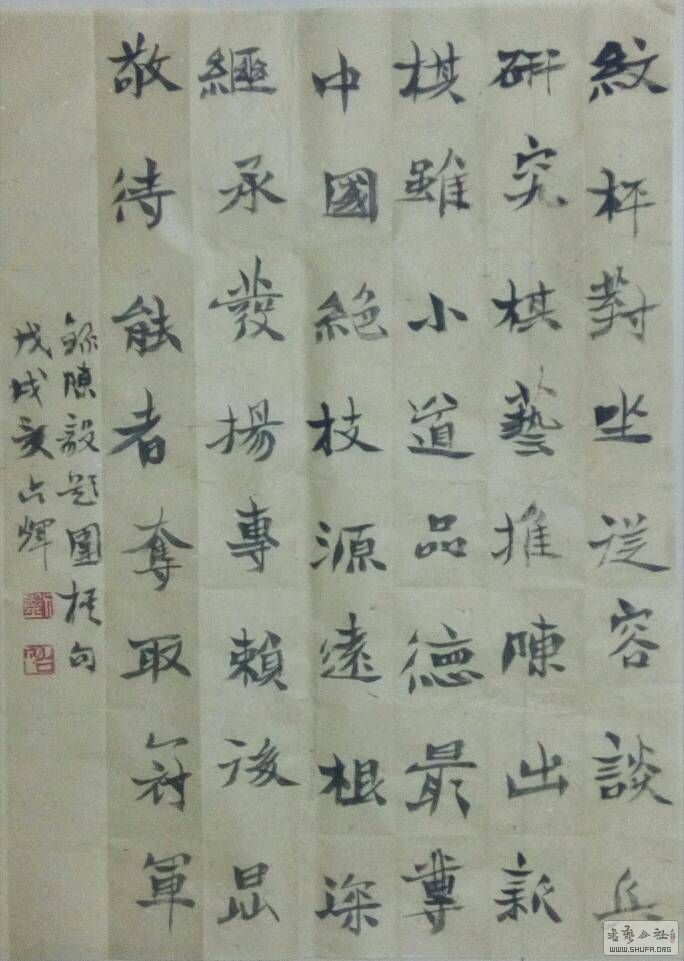 紋枰對坐從容談兵
研究棋藝推陳出新
棋雖小道品德最尊
中國絕技源遠根深
繼承發揚專賴後昆
敬待能者奪取冠軍
錄陳毅題圍棋句
戊戌夏占輝
書藝公社
WWW.SHUFA.ORG